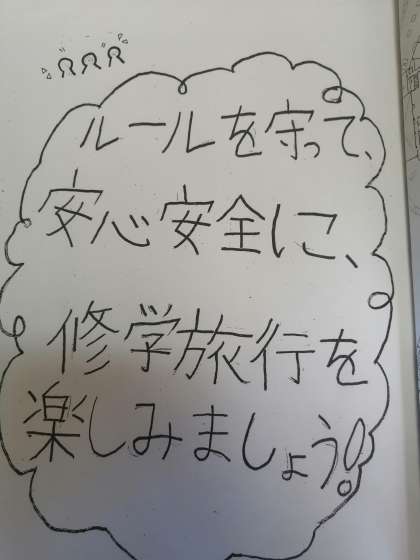 ルールを守って、
安心安全に、
修学旅行を
楽しみましょう!